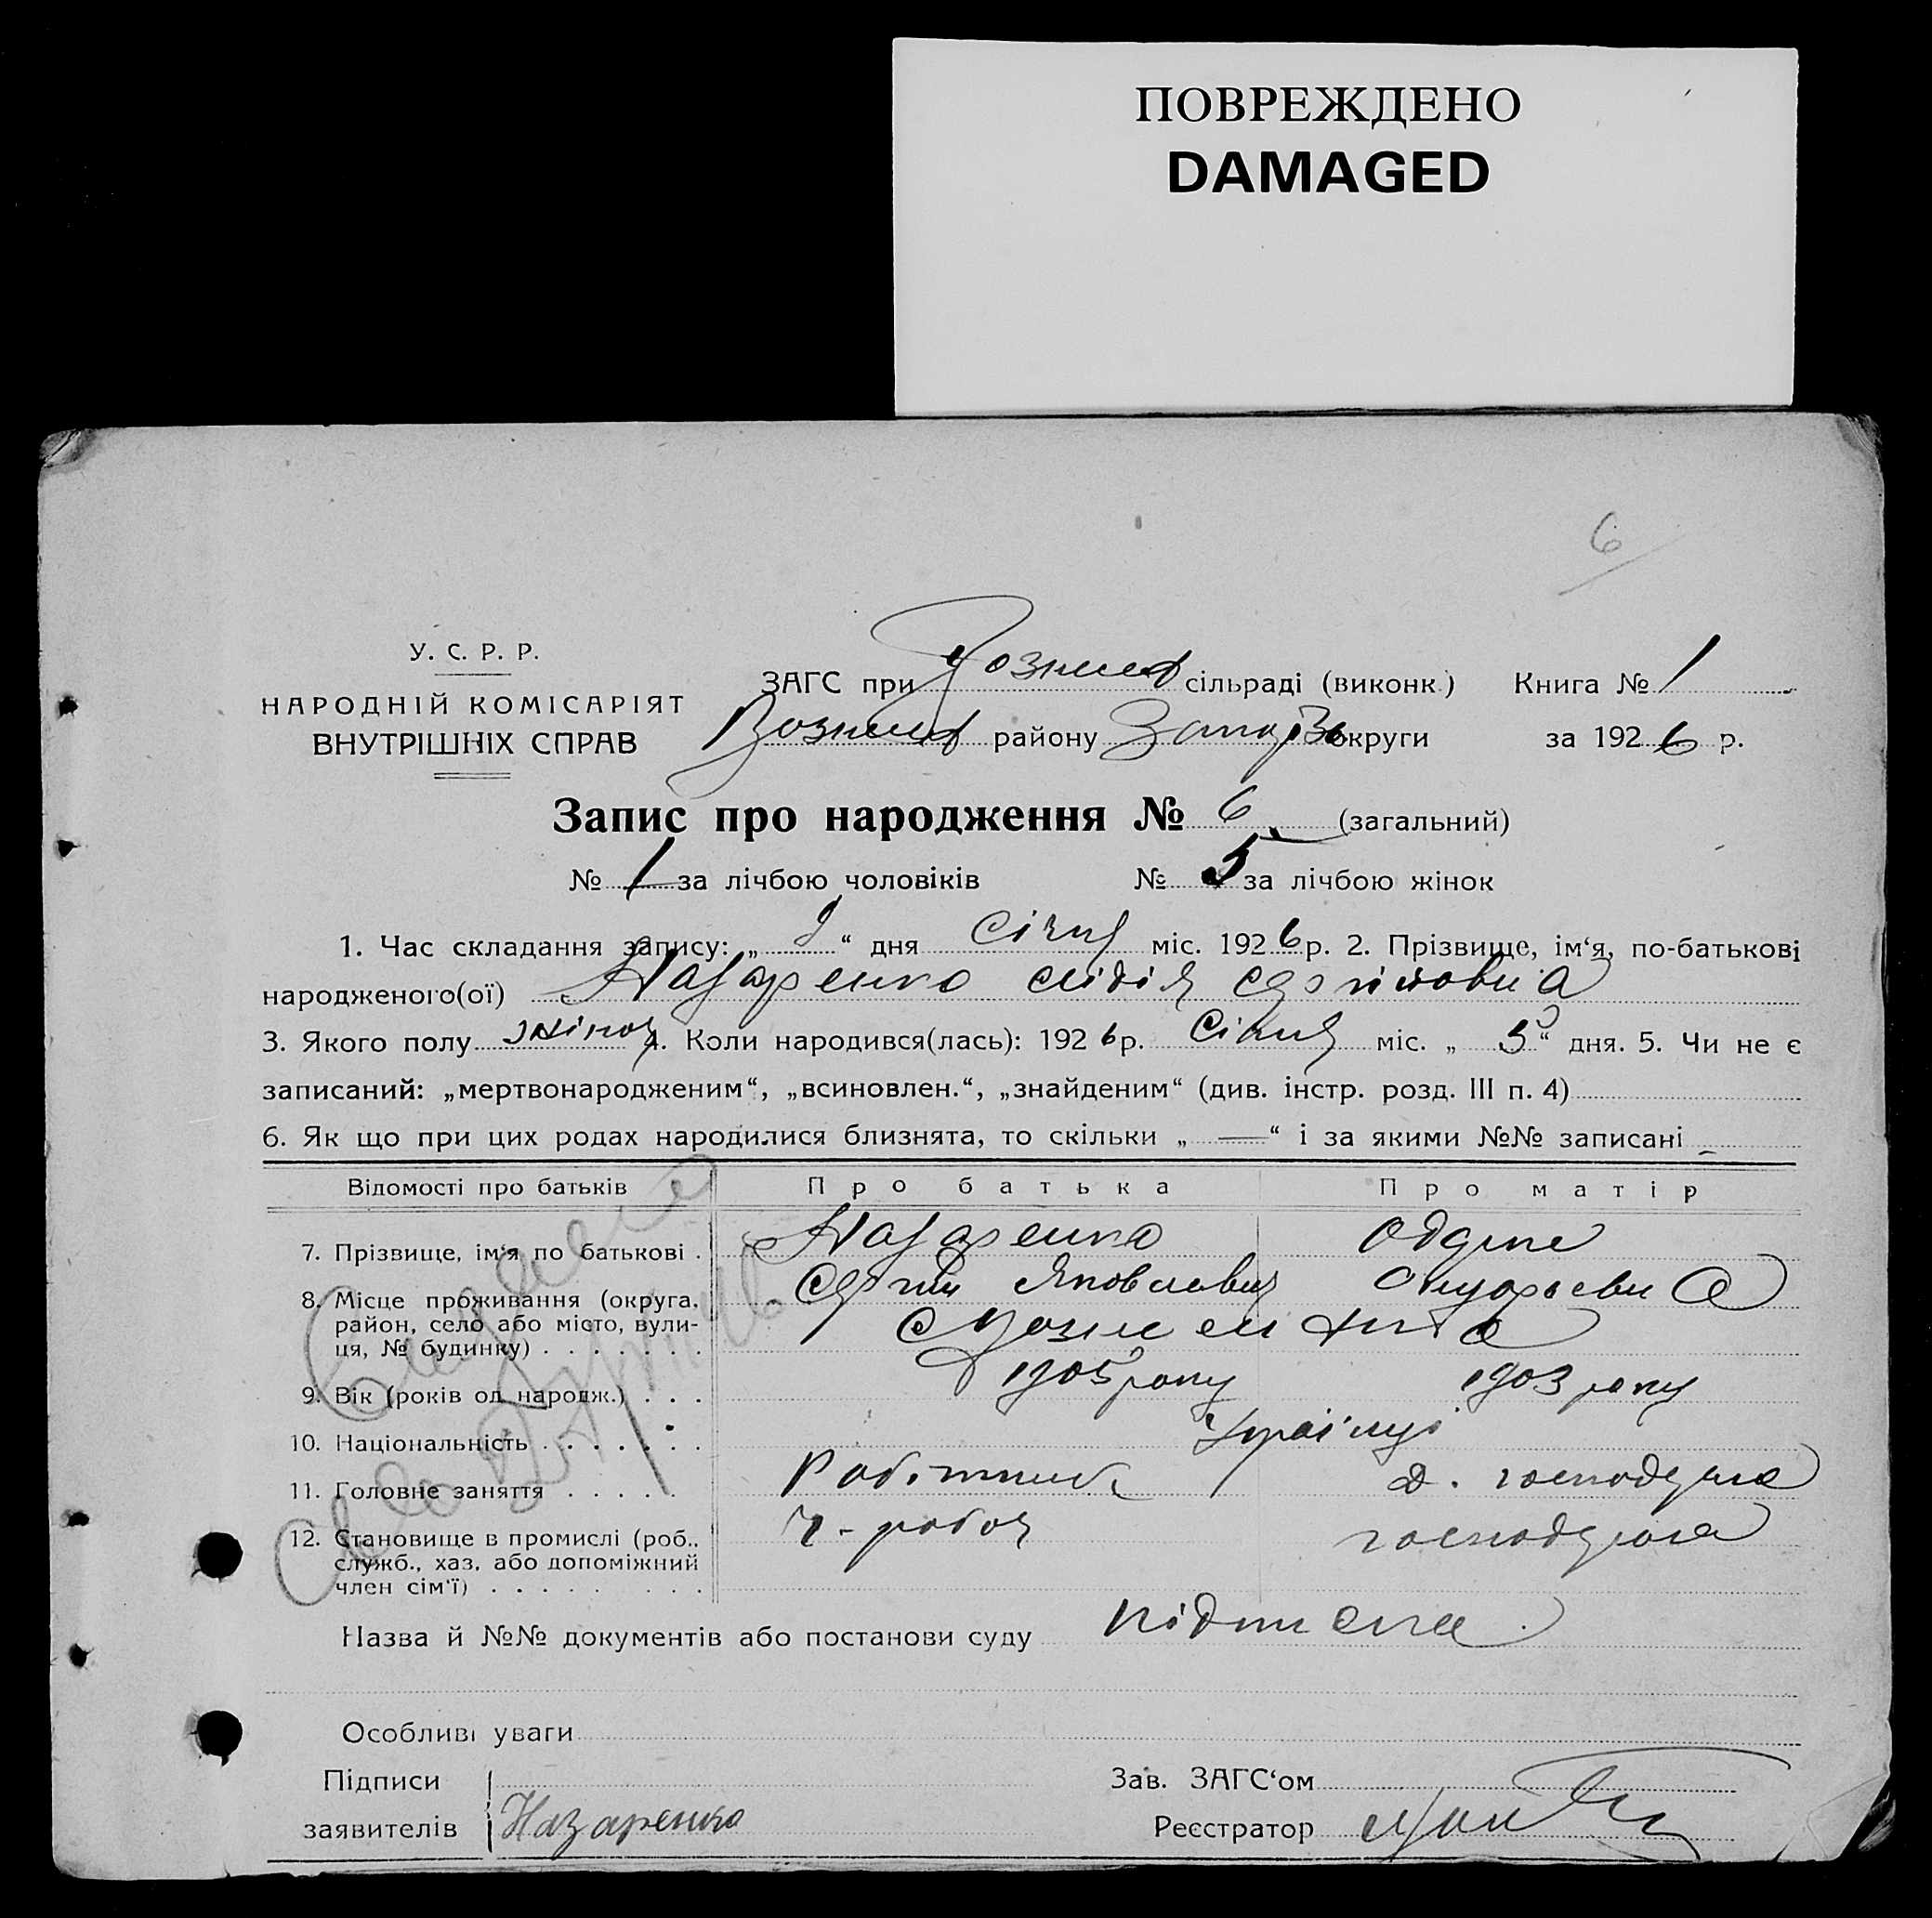 ПОВРЕЖДЕНО
DAMAGED
6
У. С. Р. Р.
НАРОДНІЙ КОМІСАРІЯТ
ВНУТРІШНІХ СПРАВ
ЗАГС при сільраді (виконк.) Книга № 1
району округи за 1926 р.
Запис про народження № 6 (загальний)
№ 1 за лічбою чоловіків № 5 за лічбою жінок
1. Час складання запису: „ “ дня Січня міс. 1926 р. 2. Прізвище, ім‘я, по-батькові
народженого(ої) Назаренко Лідія Сергіївна
3. Якого полу жіноч 4. Коли народився(лась): 1926 р. Січня міс. „ 5 “ дня. 5. Чи не є
записаний: „мертвонародженим“, „всиновлен.“, „знайденим“ (див. інстр. розд. III п. 4)
6. Як що при цих родах народилися близнята, то скільки „ — “ і за якими №№ записані
Відомості про батьків Про батька Про матір
7. Прізвище, ім‘я по батькові . Назаренко
Сергій Яковлевич
8. Місце проживання (округа,
район, село або місто, вули-
ця, № будинку)
9. Вік (років од народж.) . . . 1905 року 1903 року
10. Національність Українці
11. Головне заняття Робітник д. господарка
12. Становище в промислі (роб.,
служб., хаз. або допоміжний
член сім‘ї)
господарка
Назва й №№ документів або постанови суду підписка
Особливі уваги
Підписи
заявителів Назаренко
Зав. ЗАГС‘ом
Реєстратор